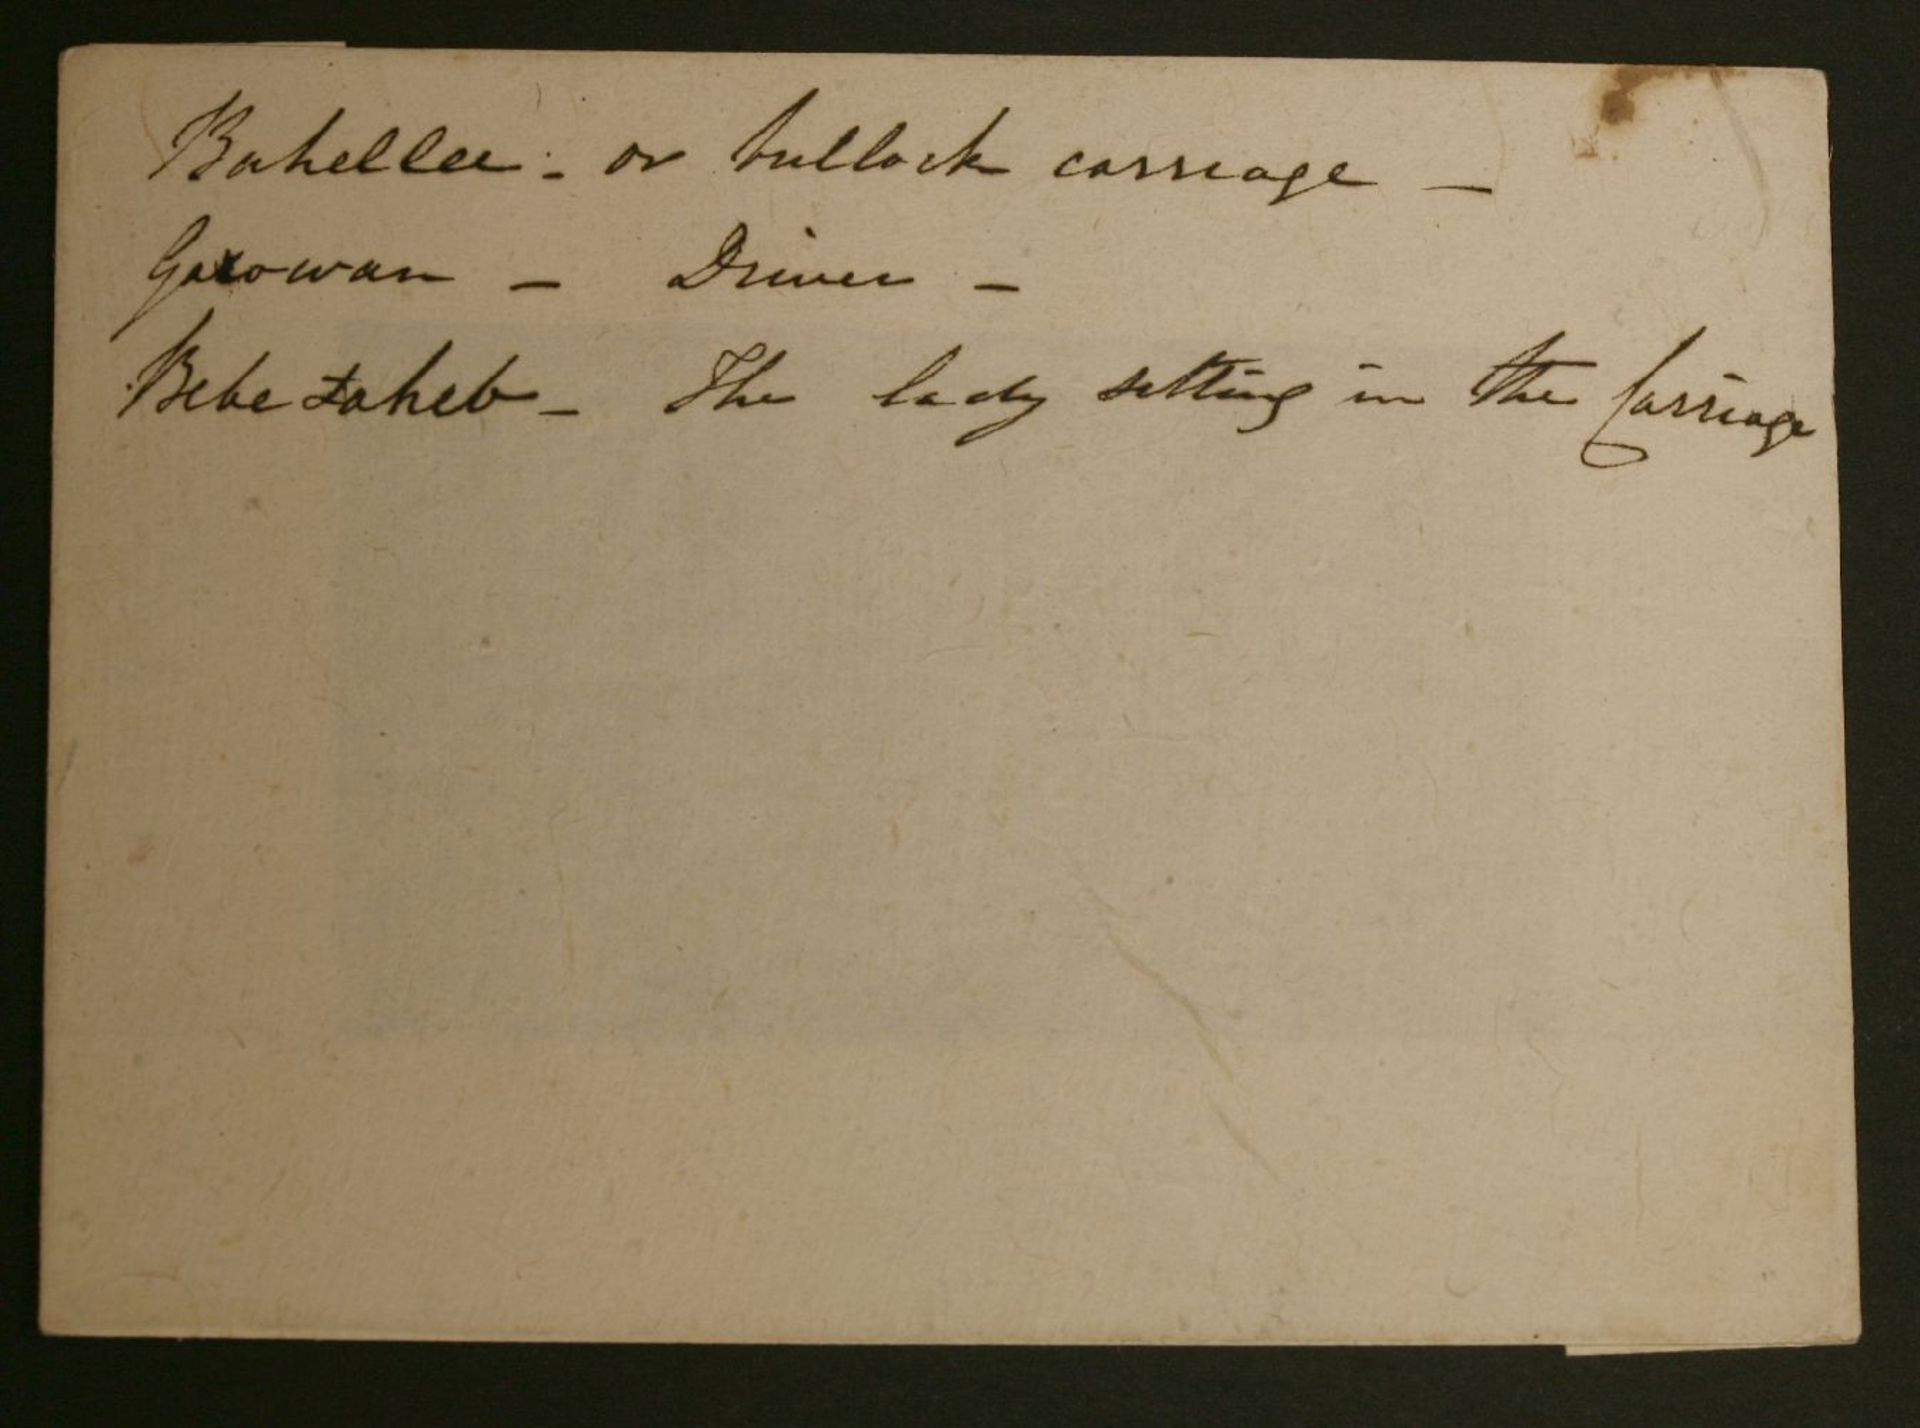 Bahellee - or bullock carriage -
Garowan - Driver -
Bebe Saheb - The lady setting in the Carriage